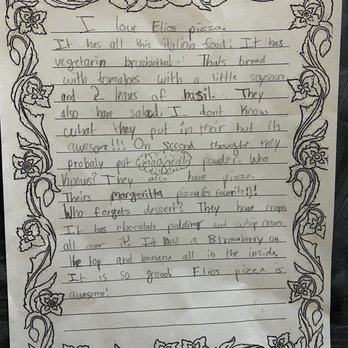 I love Elios pizza.
It has all this italian food! It has
vegetarin bruchetta! Thats bread
with tomatoes with a little
and 2 leaves of basil. They
also have salad. I dont know
what they put in their but its
awesome!!! On second thought they
probaly put powder. Who
knows? They also have pizza.
Theirs margeritta pizza (
Who forgets dessert? They have crapes
It has chocolate pudding and whip cream
all over it! It has a strawberry on
the top and banana all in the inside.
It is so good. Elios pizza is
awesome!